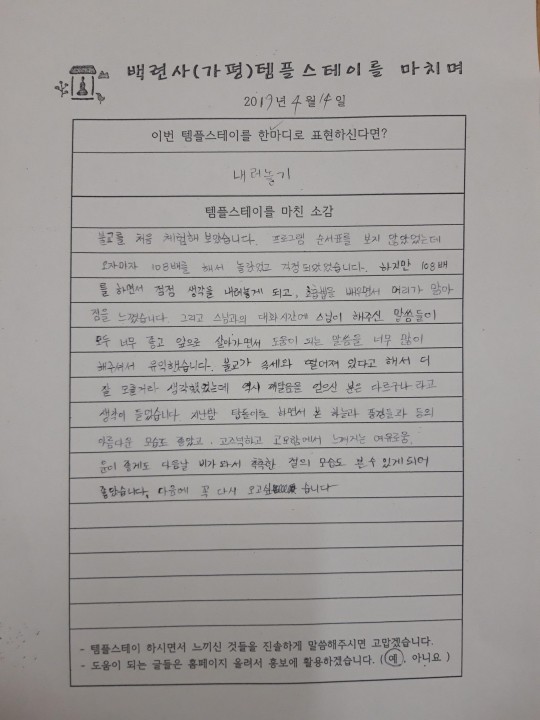 백련사(가평)템플스테이를 마치며
2019년 4월 14일
이번 템플스테이를 한마디로 표현하신다면?
내려놓기
템플스테이를 마친 소감
불교를 처음 체험해 보았습니다. 프로그램 순서표를 보지 않았었는데
오자마자 108배를 해서 놀랐었고 걱정되었었습니다. 하지만 108배
를 하면서 점점 생각을 내려놓게 되고, 호흡법을 배우면서 머리가 맑아
짐을 느꼈습니다. 그리고 스님과의 대화시간에 스님이 해주신 말씀들이
모두 너무 좋고 앞으로 살아가면서 도움이 되는 말씀을 너무 많이
해주셔서 유익했습니다. 불교가 속세와 떨어져 있다고 해서 더
잘 모를거라 생각했었는데 역시 깨달음을 얻으신 분은 다르구나 라고
생각이 들었습니다 지난밤 탑돌이를 하면서 본 하늘과 풍경들과 등의
아름다운 모습도 좋았고, 고즈넉하고 고요함에서 느껴지는 여유로움.
운이 좋게도 다음날 비가 와서 촉촉한 절의 모습도 볼 수 있게되어
좋았습니다. 다음에 꼭 다시 오고싶습니다
- 템플스테이 하시면서 느끼신 것들을 진솔하게 말씀해주시면 고맙겠습니다.
- 도움이 되는 글들은 홈페이지 올려서 홍보에 활용하겠습니다. ( 예, 아니요 )